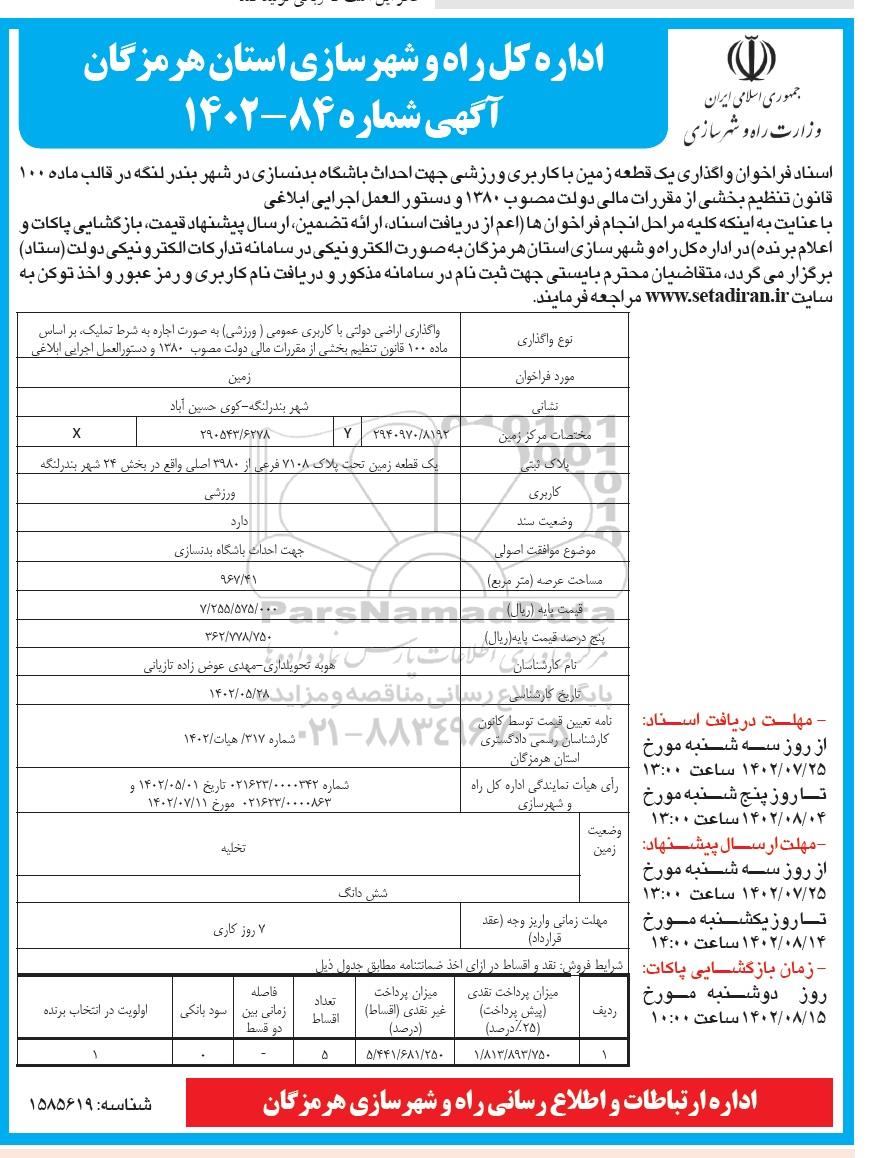 جمهوری اسلامی ایران
وزارت راه و شهرسازی
اداره کل راه و شهرسازی استان هرمزگان
آگهی شماره ۸۴-۱۴۰۲
اسناد فراخوان واگذاری یک قطعه زمین با کاربری ورزشی جهت احداث باشگاه بدنسازی در شهر بندر لنگه در قالب ماده ۱۰۰
قانون تنظیم بخشی از مقررات مالی دولت مصوب ۱۳۸۰ و دستور العمل اجرایی ابلاغی
با عنایت به اینکه کلیه مراحل انجام فراخوان ها (اعم از دریافت اسناد، ارائه تضمین، ارسال پیشنهاد قیمت، بازگشایی پاکات و
اعلام برنده) در اداره کل راه و شهرسازی استان هرمزگان به صورت الکترونیکی در سامانه تدارکات الکترونیکی دولت (ستاد)
برگزار می گردد، متقاضیان محترم بایستی جهت ثبت نام در سامانه مذکور و دریافت نام کاربری و رمز عبور و اخذ توکن به
سایت www.setadiran.ir مراجعه فرمایند.
نوع واگذاری
واگذاری اراضی دولتی با کاربری عمومی ( ورزشی) به صورت اجاره به شرط تملیک، بر اساس
ماده ۱۰۰ قانون تنظیم بخشی از مقررات مالی دولت مصوب ۱۳۸۰ و دستورالعمل اجرایی ابلاغی
مورد فراخوان زمین
نشانی شهر بندرلنگه-کوی حسین آباد
مختصات مرکز زمین ۲۹۴۰۹۷۰/۸۱۹۲ Y ۲۹۰۵۴۳/۶۲۷۸ X
پلاک ثبتی یک قطعه زمین تحت پلاک ۷۱۰۸ فرعی از ۳۹۸۰ اصلی واقع در بخش ۲۴ شهر بندرلنگه
کاربری ورزشی
وضعیت سند دارد
موضوع موافقت اصولی جهت احداث باشگاه بدنسازی
مساحت عرصه (متر مربع) ۹۶۷/۴۱
قیمت پایه (ریال) ۷/۲۵۵/۵۷۵/۰۰۰
پنج درصد قیمت پایه(ریال) ۳۶۲/۷۷۸/۷۵۰
نام کارشناسان هوبه تحویلداری-مهدی عوض زاده تازیانی
تاریخ کارشناسی ۱۴۰۲/۰۵/۲۸
نامه تعیین قیمت توسط کانون
کارشناسان رسمی دادگستری
استان هرمزگان
شماره ۳۱۷/ هیات/۱۴۰۲
رأی هیأت نمایندگی اداره کل راه
و شهرسازی
شماره ۰۲۱۶۲۳/۰۰۰۰۳۴۲ تاریخ ۱۴۰۲/۰۵/۰۱ و
۰۲۱۶۲۳/۰۰۰۰۸۶۳ مورخ ۱۴۰۲/۰۷/۱۱
وضعیت
زمین
تخلیه
شش دانگ
مهلت زمانی واریز وجه (عقد
قرارداد)
۷ روز کاری
شرایط فروش: نقد و اقساط در ازای اخذ ضمانتنامه مطابق جدول ذیل
ردیف
میزان پرداخت نقدی
(پیش پرداخت)
(۲۵٪درصد)
میزان پرداخت
غیر نقدی (اقساط)
(درصد)
تعداد
اقساط
فاصله
زمانی بین
دو قسط
سود بانکی
اولویت در انتخاب برنده
۱ ۱/۸۱۳/۸۹۳/۷۵۰ ۵/۴۴۱/۶۸۱/۲۵۰ ۵ - ۰ ۱
- مهلت دریافت اسناد:
از روز سه شنبه مورخ
۱۴۰۲/۰۷/۲۵ ساعت ۱۳:۰۰
تا روز پنج شنبه مورخ
۱۴۰۲/۰۸/۰۴ ساعت ۱۳:۰۰
-مهلت ارسال پیشنهاد:
از روز سه شنبه مورخ
۱۴۰۲/۰۷/۲۵ ساعت ۱۳:۰۰
تا روز یکشنبه مورخ
۱۴۰۲/۰۸/۱۴ ساعت ۱۴:۰۰
- زمان بازگشایی پاکات:
روز دوشنبه مورخ
۱۴۰۲/۰۸/۱۵ ساعت ۱۰:۰۰
ParsNamadData
مرکز فرآوری اطلاعات پارس نماد داده ها
پایگاه اطلاع رسانی مناقصه و مزایده
۰۲۱-۸۸۳۴۹۶۷۰-۵
اداره ارتباطات و اطلاع رسانی راه و شهرسازی هرمزگان
شناسه: ۱۵۸۵۶۱۹